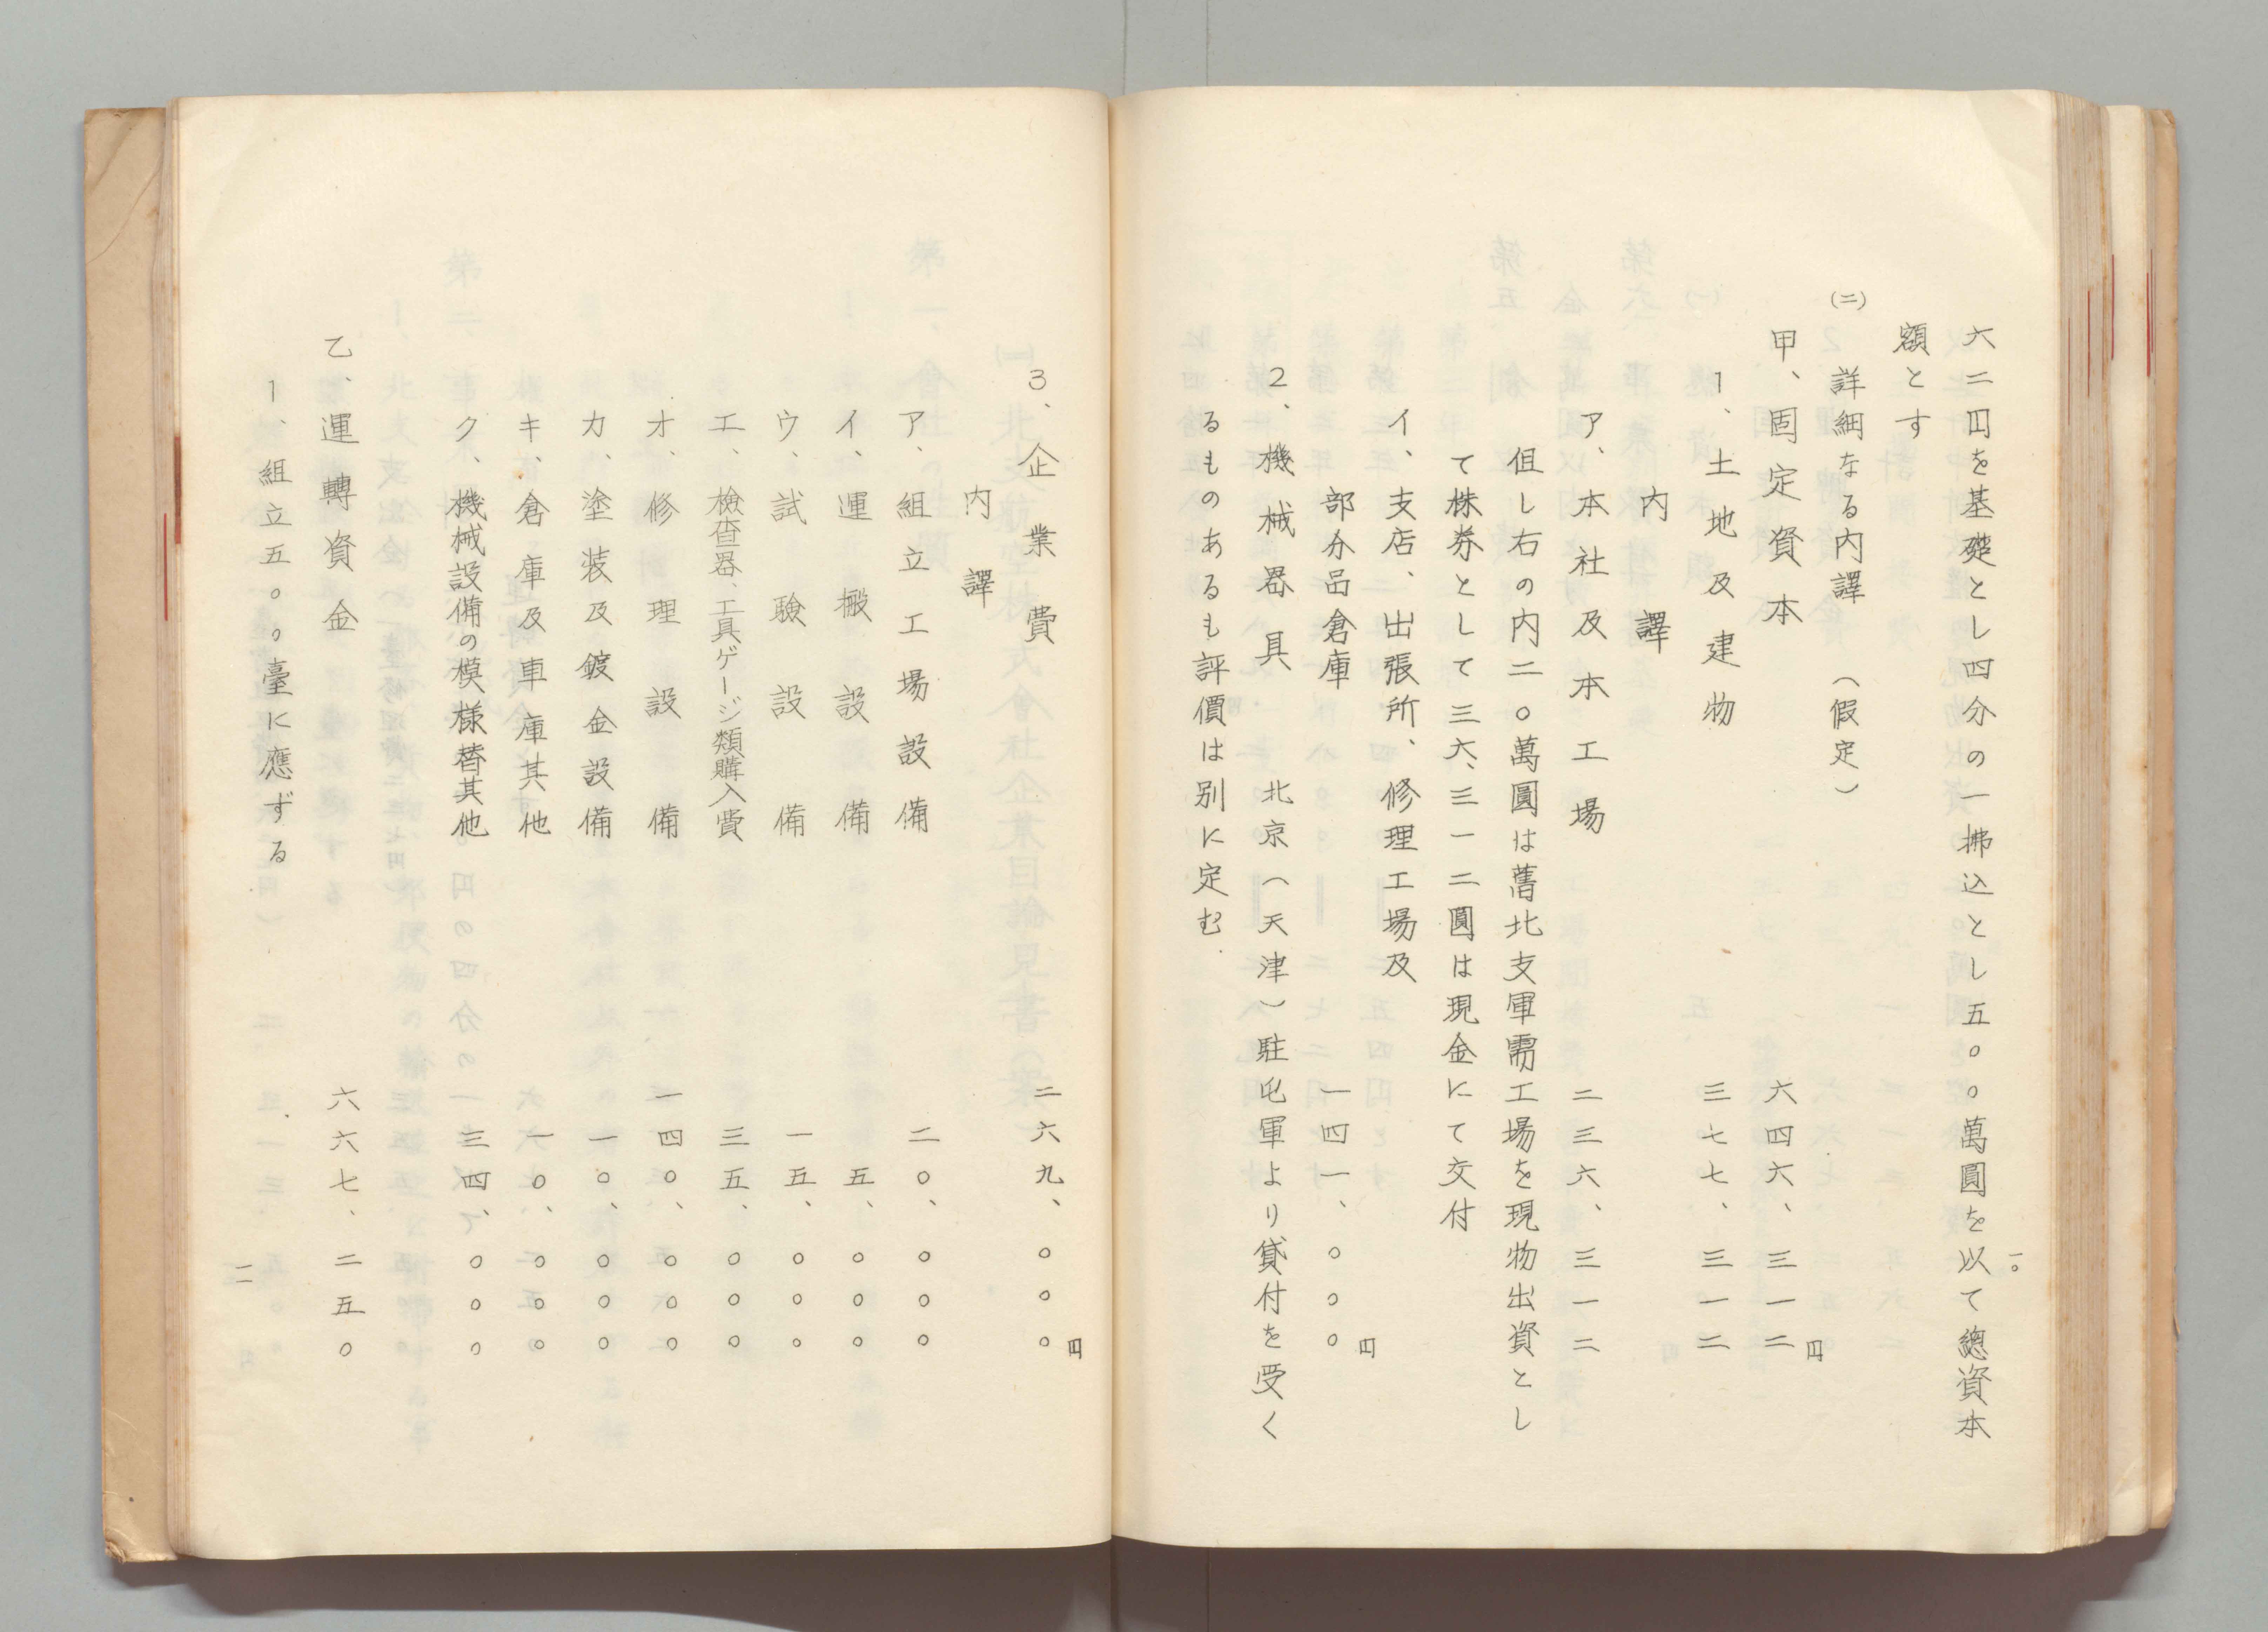 六二円を基礎とし四分の一拂込とし五〇〇萬圓を以て總資本
額とす
(二) 詳細なる内譯 (假定)
甲、固定資本 六四六、三一二円
1、土地及建物 三七七、三一二
内譯
ア、本社及本工場 二三六、三一二
但し右の内二〇萬圓は舊北支軍需工場を現物出資とし
て株券として三六、三一二圓は現金にて交付
イ、支店、出張所、修理工場及
部分品倉庫 一四一、〇〇〇円
2、機械器具 北京(天津)駐屯軍より貸付を受く
るものあるも評價は別に定む
一〇
3、企業費 二六九、〇〇〇円
内譯
ア、組立工場設備 二〇、〇〇〇
イ、運搬設備 五、〇〇〇
ウ、試驗設備 一五、〇〇〇
エ、檢査器、工具ゲージ類購入費 三五、〇〇〇
オ、修理設備 一四〇、〇〇〇
カ、塗装及鍍金設備 一〇、〇〇〇
キ、倉庫及車庫其他 一〇、〇〇〇
ク、機械設備の模様替其他 三四、〇〇〇
乙、運轉資金 六六七、二五〇
1、組立五〇〇臺に應ずる
一一